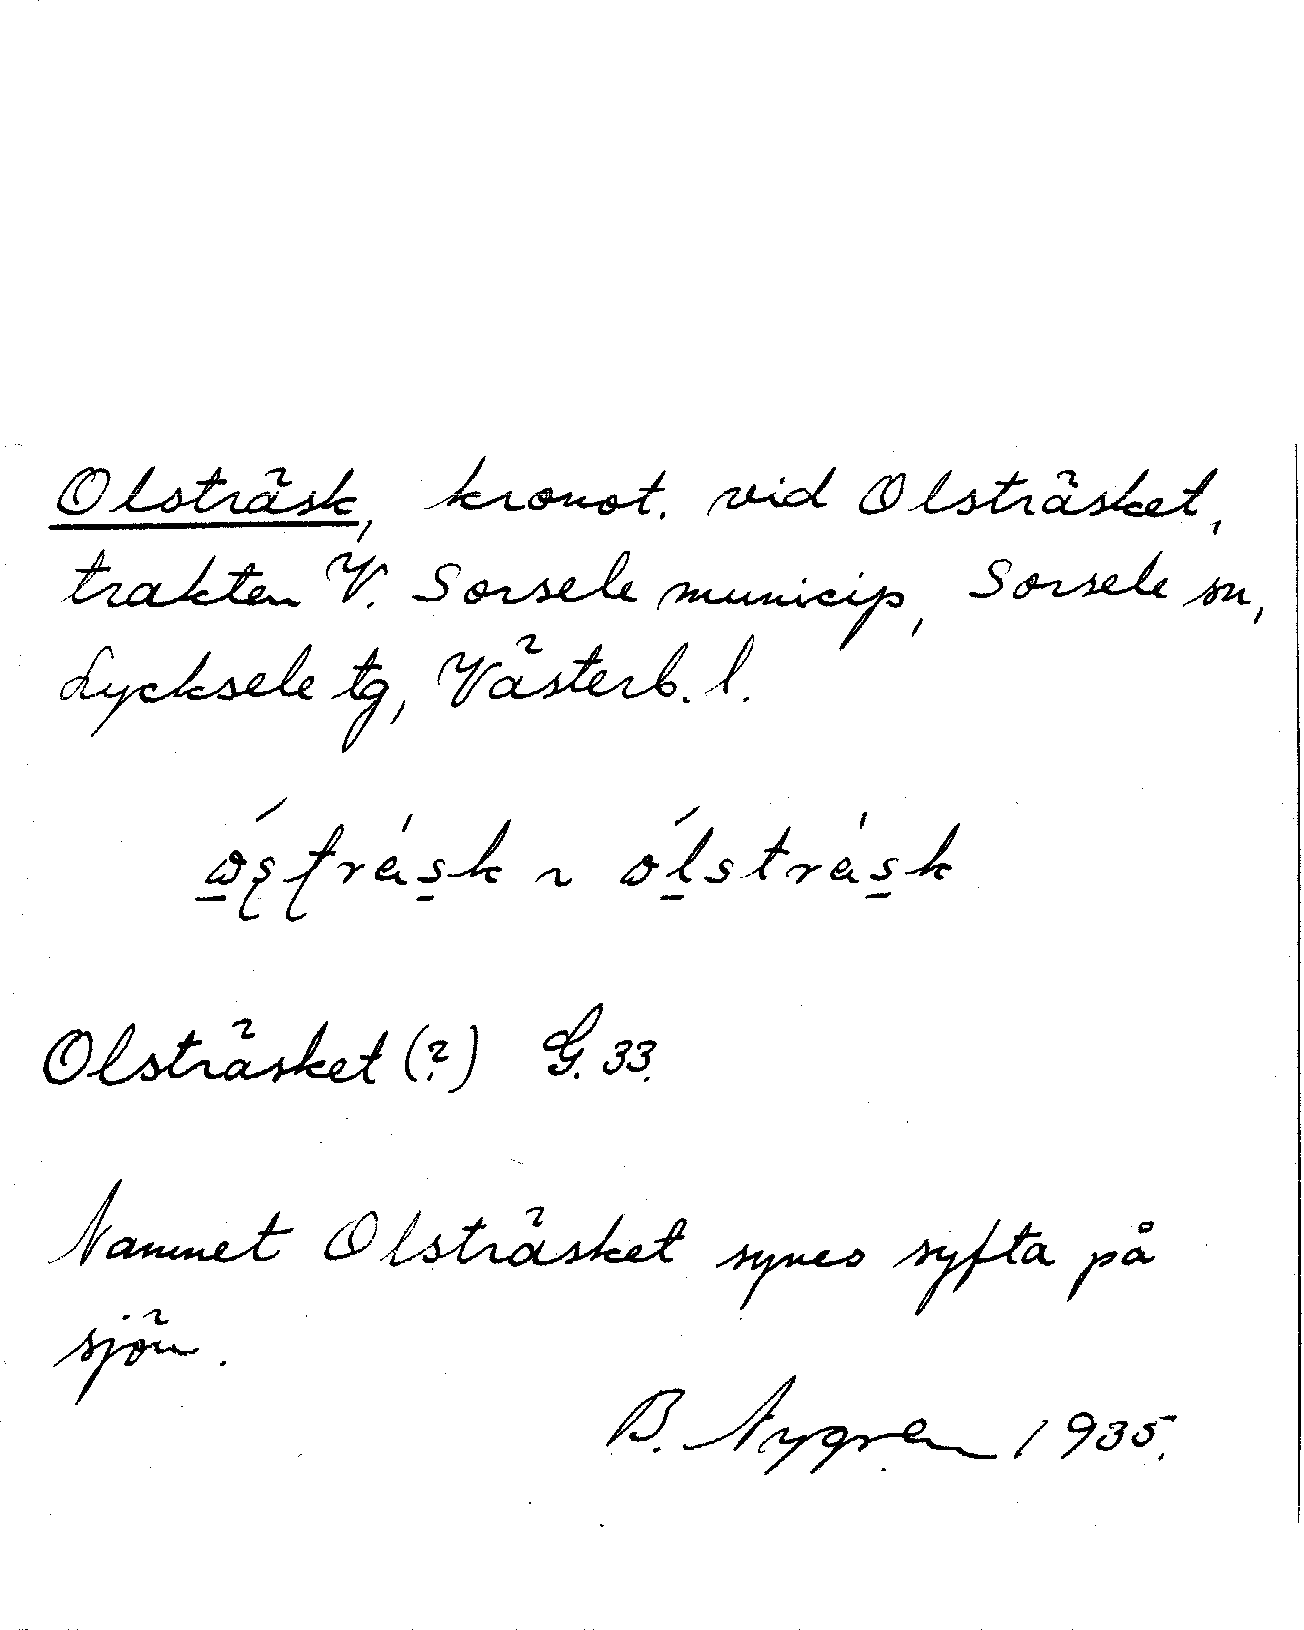 Olsträsk, kronot. vid Olsträsket,
trakten V. Sorsele municip, Sorsele sn,
Lycksele tg, Västerb. l.
Olsträsket (?) G. 33.
Namnet Olsträsket synes syfta på
sjön.
B. Nygren 1935.